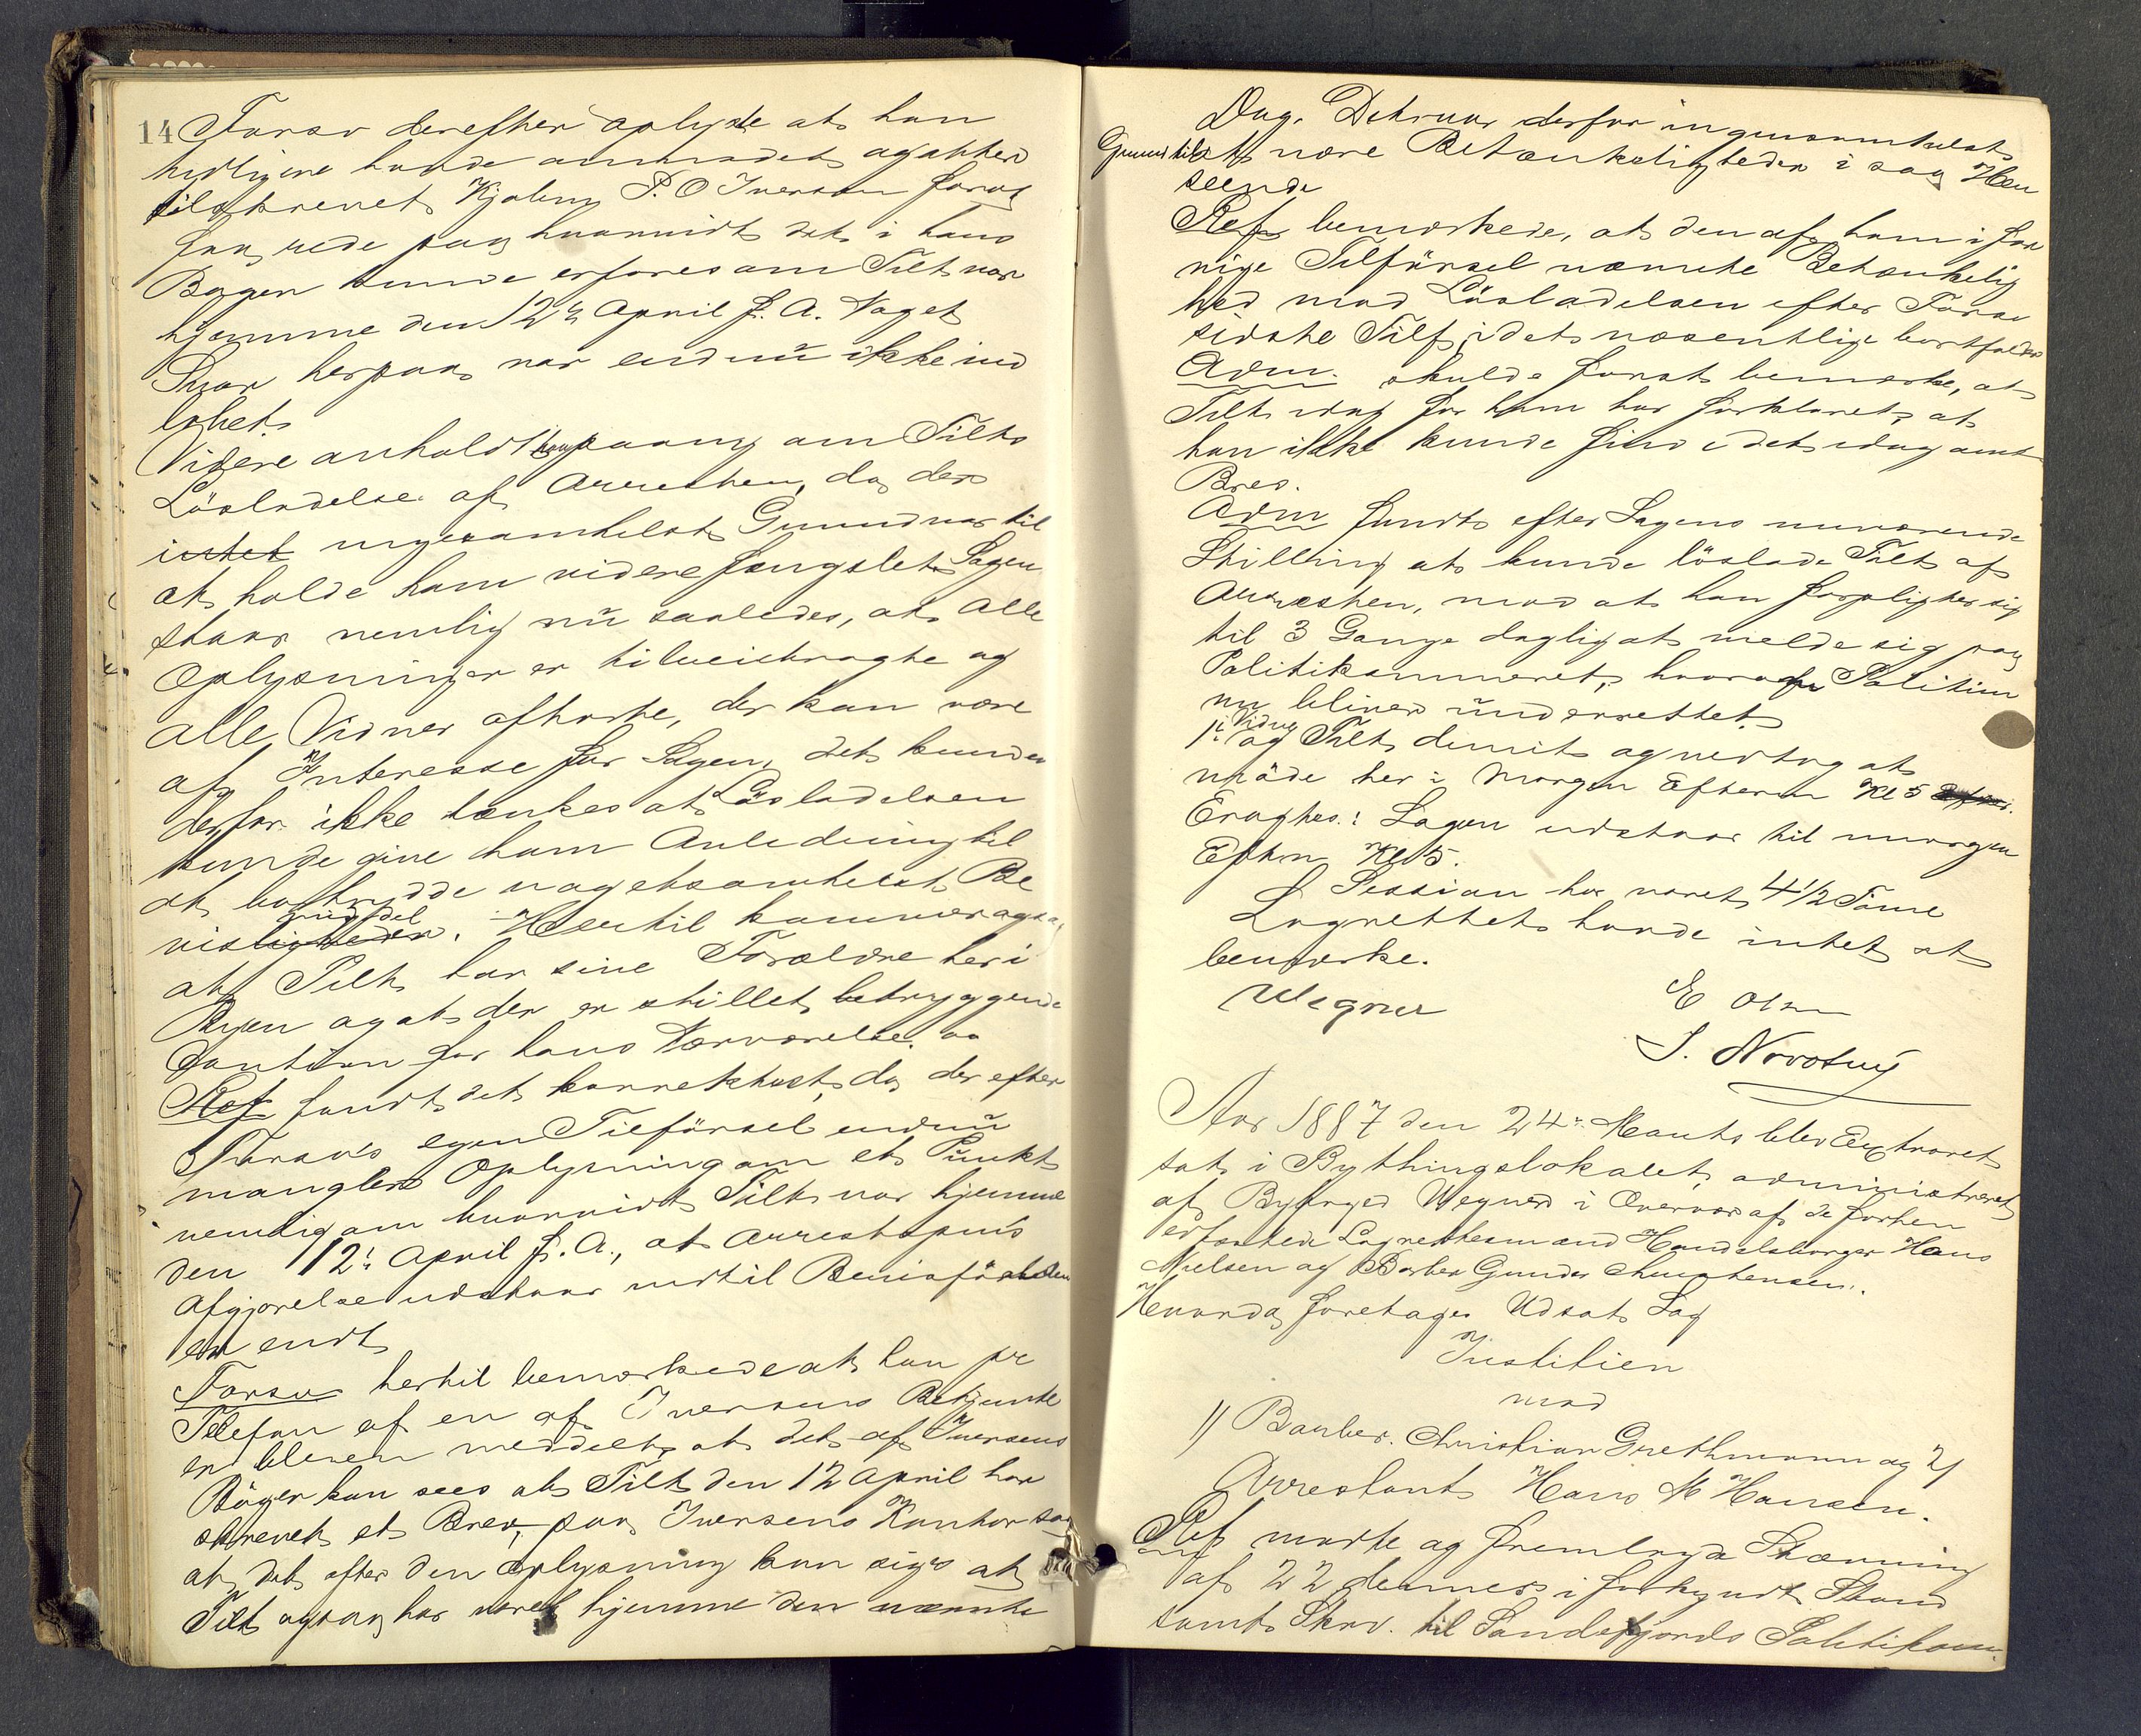 14 Forsv derefter oplyste at han
tidligere havde anmodet og atter
tilskrevet Kjøbm P. O Iversen for at
faa rede paa hvorvidt det i hans
Bøger kunde erfares om Tilt var
hjemme den 12te April f. A. Noget
Svar herpaa var endnu ikke ind
løbet.
Videre anholdt han paany om Tilts
Løsladelse af Arresten, da der
intet nogensomhelst Grund var til
at holde ham videre fængslet. Sagen
staar nemlig nu saaledes, at alle
Oplysninger er tilveiebragte og
alle Vidner afhørte, der kan være
af Interesse for Sagen, det kunde
derfor ikke tænkes at Løsladelsen
kunde give ham Anledning til
at bortrydde nogetsomhelst Be
vis. Hertil kommer ogsaa,
at Tilt har sine Forældre her i
Byen og at der er stillet betryggende
Caution for hans Nærværelse.
Ref fandt det korrektest, da der efter
Forsv's egen Tilførsel endnu
mangler Oplysning om et Punkt
nemlig om hvorvidt Tilt var hjemme
den 12te April f. A., at Arrestspms
Afgjørelse udstaar indtil Bevisførelsen
er endt
Forsv hertil bemærkede at han pr
Telefon af en af Iversens Betjente
er bleven meddelt, at det af Iversens
Bøger kan sees at Tilt den 12 April har
skrevet et Brev, paa Iversens Kontor saa
at det efter den Oplysning kan siges at
Tilt ogsaa har været hjemme den nævnte
Dag. Det var derfor ingensomhelst
Grund til at nære Betænkeligheder i saa Hen
seende
Ref bemærkede, at den af ham i for
rige Tilførsel nævnte Betænkelig
hed mod Løsladelsen efter Forsv
sidste Tilf. i det væsentlige bortfalder
Adm. skulde forsat bemærke, at
Tilt idag for ham har forklaret, at
han ikke kunde finde det idag omt
Brev.
Adm fandt efter Sagens nuværende
Stilling at kunde løslade Tilt af
Arresten, mod at han forpligter sig
til 3 Gange daglig at melde sig paa
Politikammeret, hvorom Politiet
nu bliver underrettet.
1te Vidne og Tilt dimit og vedtog at
møde her i Morgen Efterm Kl 5
Eragtes: Sagen udstaar til imorgen
Efterm Kl 5.
Session har varet 4 1/2 Time
Lagrettet havde intet at
bemærke.
Wegner
E Olsen
J. Novotny
Aar 1887 den 24de Marts blev Extraret
sat i Bythingslokalet, administreret
af Byfoged Wegner i Overvær af de forhen
edfæstede Lagrettesmænd Handelsborger Hans
Nielsen og Barber Gunder Christensen.
Hvorda foretages Udsat Sag
Justitien
mod
1) Barber. Christian Grethmann og 2)
Arrestant Hans M Hansen.
Ref mødte og fremlagde Stævning
af 22 dennes i forkyndt Stand
samt Skrv. til Sandefjords Politikam.